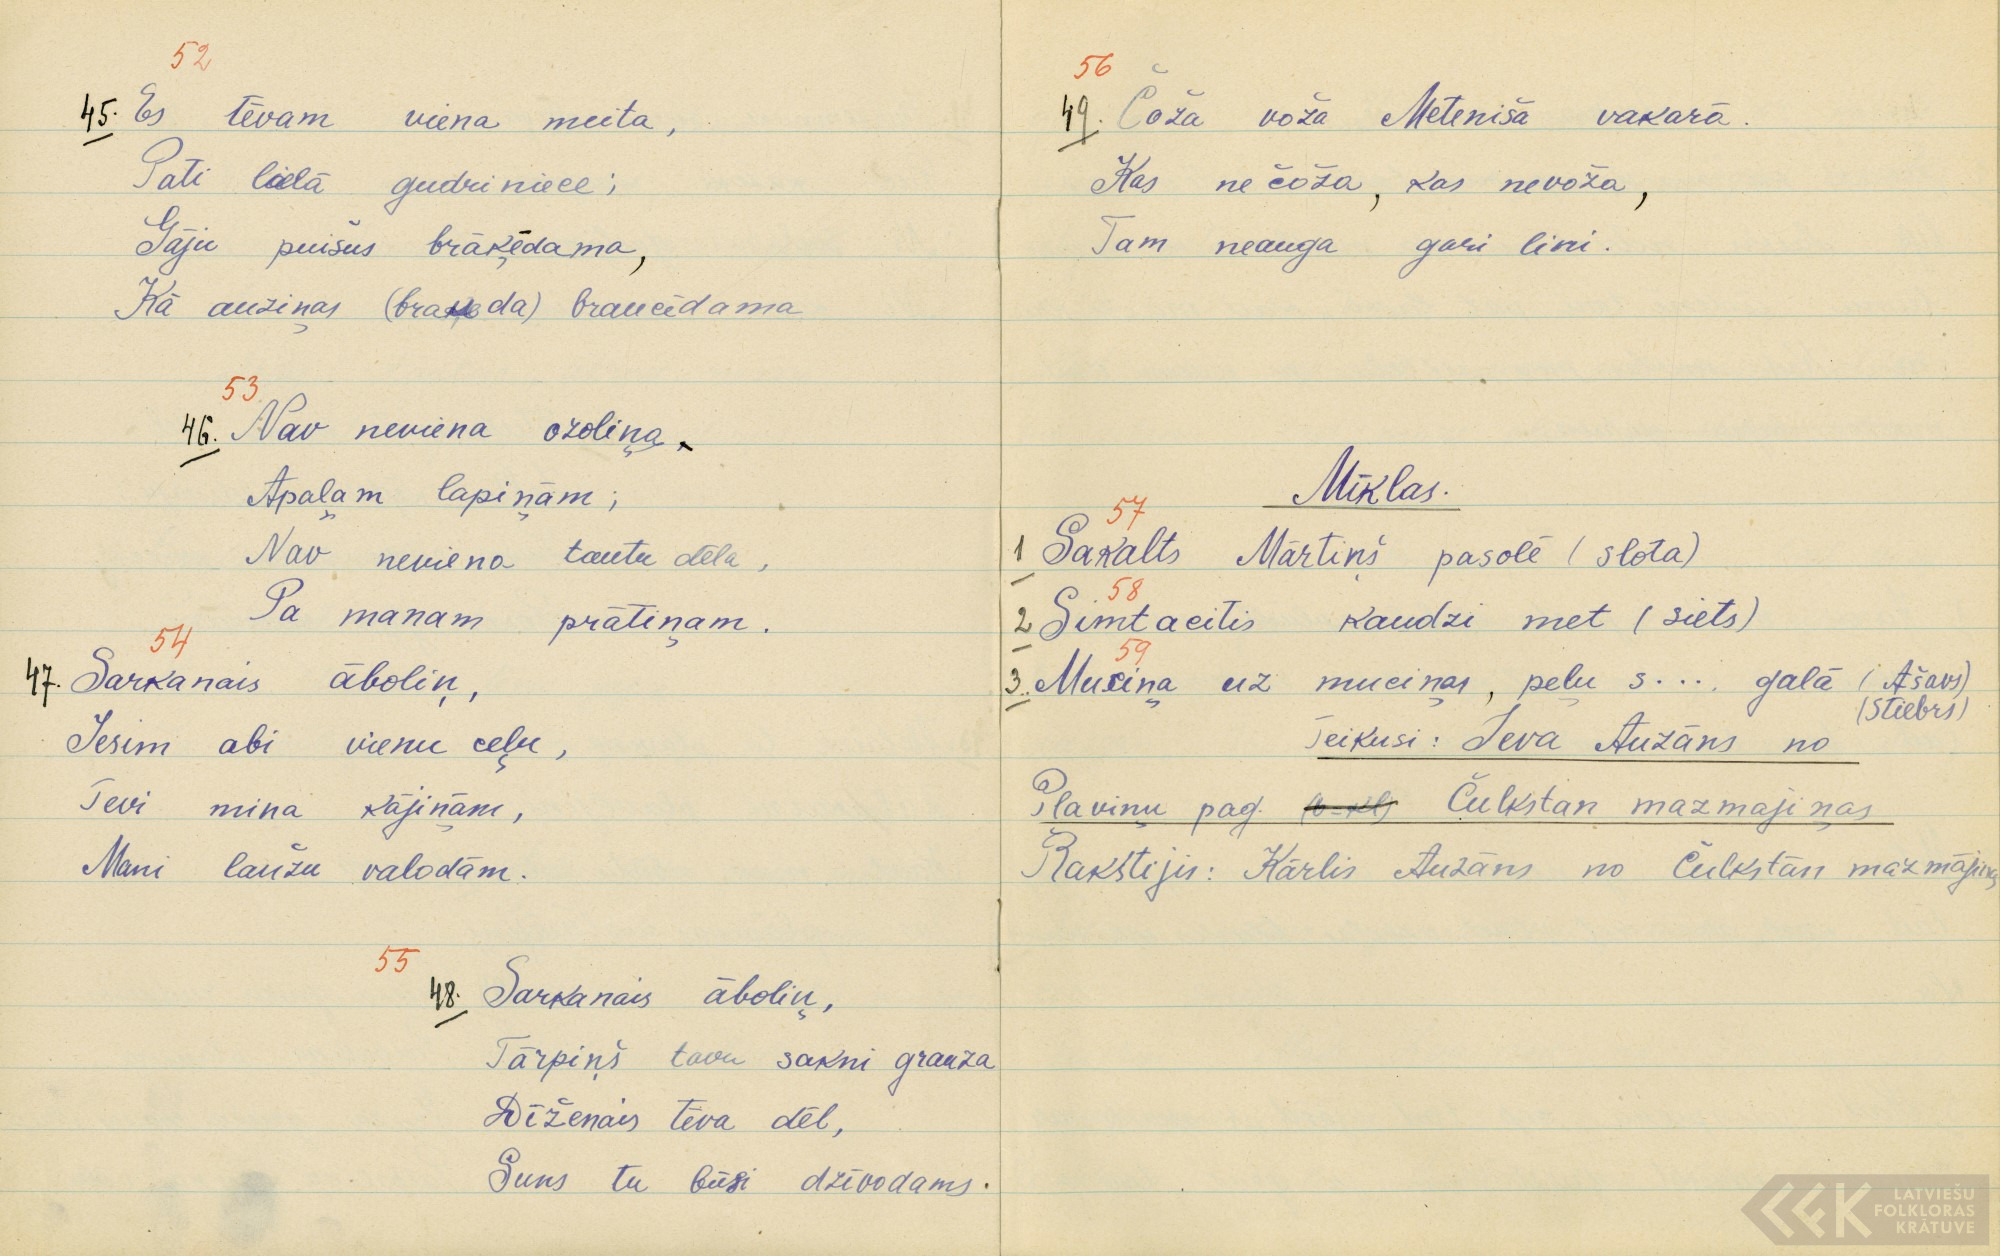 52
45. Es tēvam viena meita,
Pati lielā gudriniece;
Gāju puišus brāķēdama,
Kā auziņas (brauda) braucīdama
53
46. Nav neviena ozoliņa,
Apaļam lapiņām;
Nav neviena tautu dēla,
Pa manam prātiņam.
54
47. Sarkanais āboliņ,
Iesim abi vienu ceļu,
Tevi mina kājiņām,
Mani laužu valodām.
55
48. Sarkanais āboliņ,
Tārpiņš tavu sakni grauza
Dīženais tēva dēl,
Suns tu būsi dzīvodams.
56
49. Čoža voža Meteņišā vakarā.
Kas nečoža, kas nevoža,
Tam neauga gari lini.
Mīklas.
57
1 Sakalts Mārtiņš pasolē (slota)
58
2 Simtacitis kaudzi met (siets)
59
3. Muciņa uz muciņas, peļu s.... galā (Ašavs)
(Stiebrs)
Teikusi: Ieva Auzāns no
Pļaviņu pag. Čulkstan mazmajiņas
Rakstijis: Kārlis Auzāns no Čulkstān mazmājiņas
LATVIEŠU
FOLKLORAS
KRĀTUVE